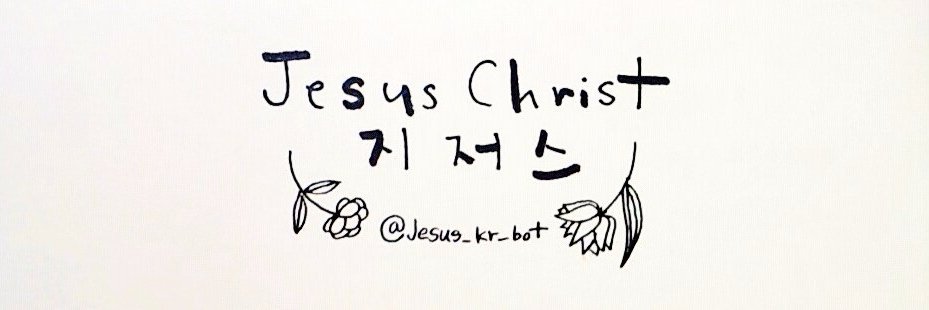 Jesus Christ
지저스
@Jesus_kr_bot